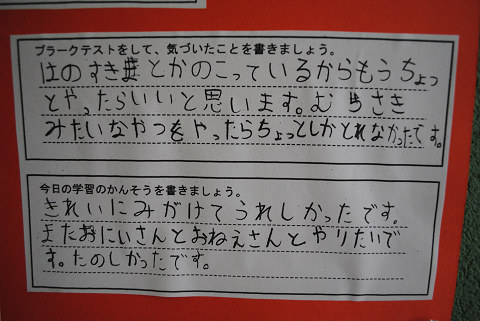 プラークテストをして、気づいたことを書きましょう。
はのすきまとかのこっているからもうちょっ
とやったらいいと思います。むらさき
みたいなやつをやったらちょっとしかとれなかったです。
今日の学習のかんそうを書きましょう。
きれいにみがけてうれしかったです。
またおにいさんとおねえさんとやりたいで
す。たのしかったです。